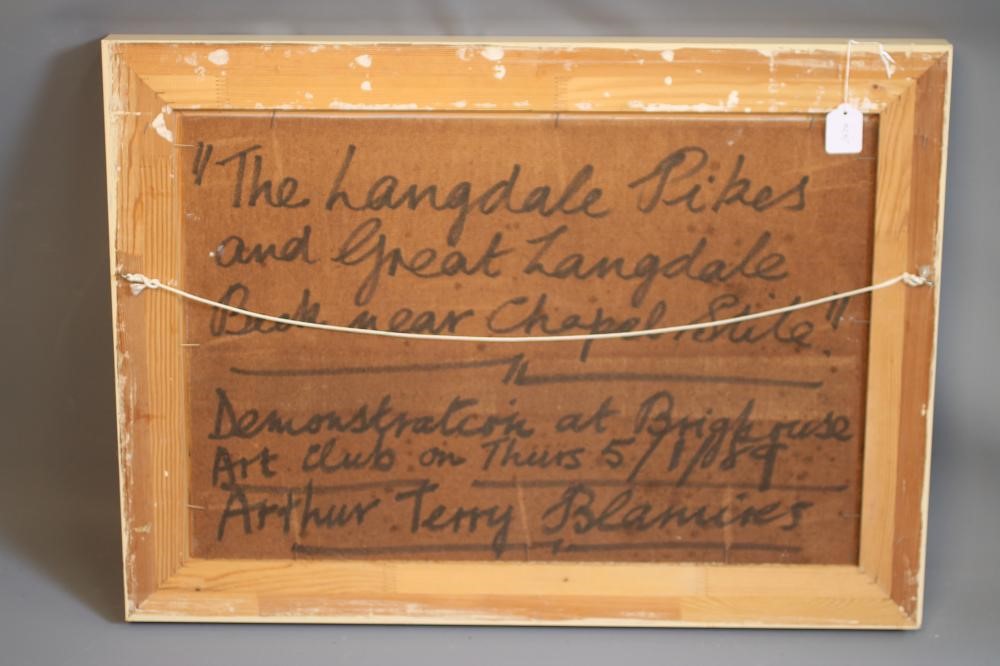 "The Langdale Pikes
and Great Langdale
Beck near Chapel Stile".
Demonstration at Brighouse
Art Club on Thurs 5/1/89
Arthur Terry Blamires